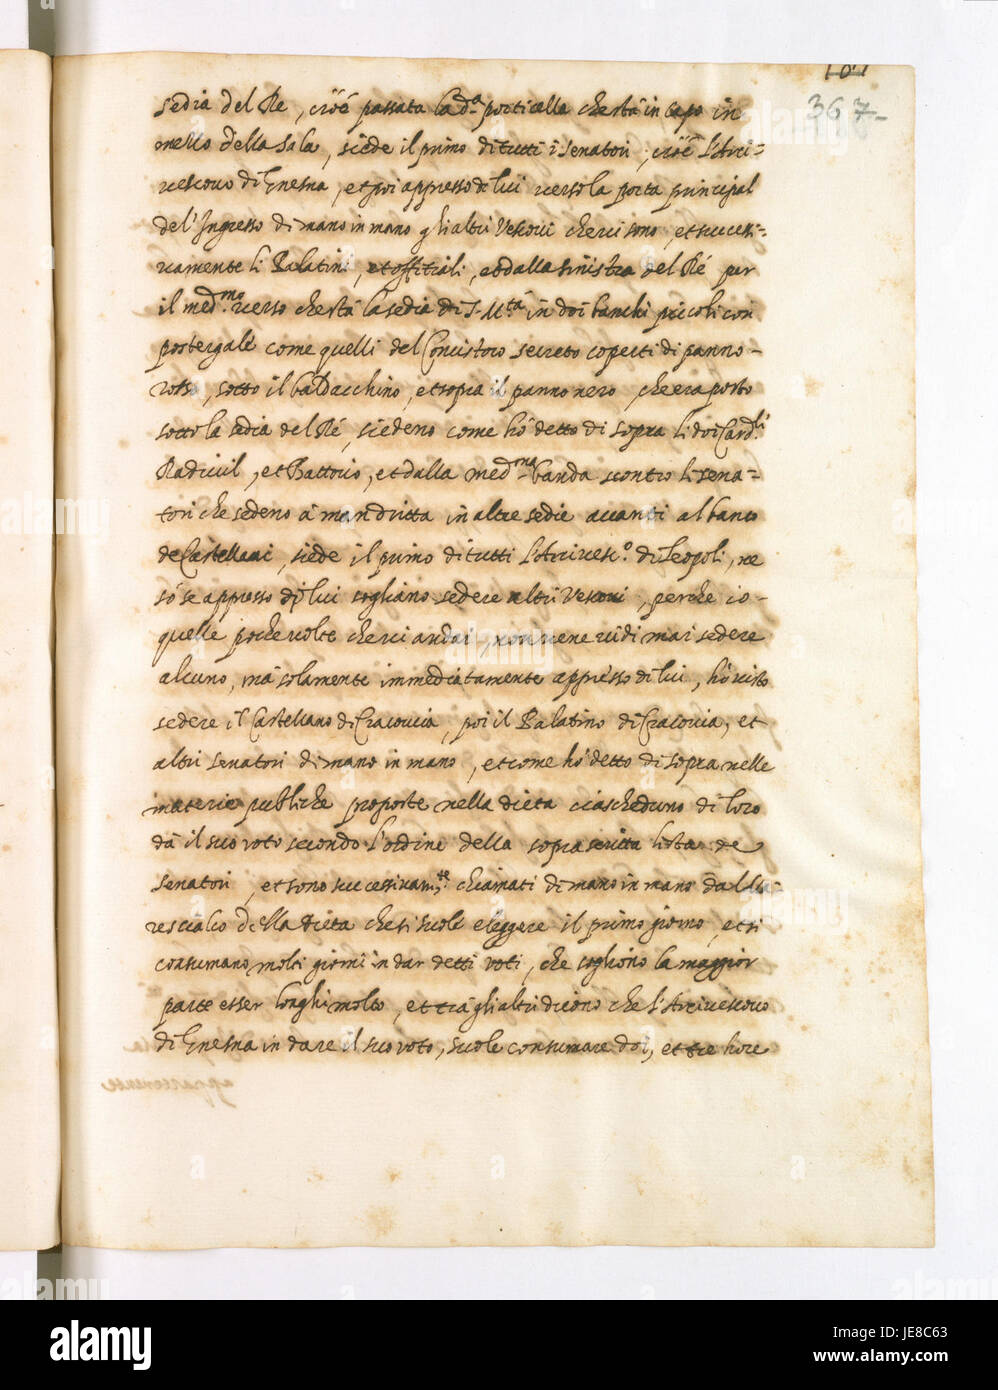 367
sedia del Re, cioè passata la d.a porticella che stà in capo in
mezzo della sala, siede il primo di tutti i senatori, cioè l'Arci-
vescovo di Gnesna, et poi appresso di lui verso la porta principal
del'Ingresso di mano in mano gli altri Vescovi che vi sono, et successi-
vamente li Palatini, et offitiali, et dalla sinistra del Ré per
il med.mo verso che stà la sedia di S. M.tà in doi banchi piccoli con
postergale come quelli del Concistoro secreto coperti di panno
rosso, sotto il baldacchino, et sopra il panno nero che era posto
sotto la sedia del Ré, siedeno come hò detto di sopra li doi Card.li
Radivil, et Battorio, et dalla med.ma banda scontro li sena-
tori che sedeno à man dritta in altre sedie avanti al banco
de Castellani, siede il primo di tutti l'Arcivesc.o di Leopoli, ne
sò se appresso di lui sogliano sedere altri Vescovi, perche io
quelle poche volte che vi andai, non vene vidi mai sedere
alcuno, mà solamente immediatamente appresso di lui, hò visto
sedere il Castellano di Cracovia, poi il Palatino di Cracovia, et
altri senatori di mano in mano, et come hò detto di sopra nelle
materie publiche proposte nella dieta ciascheduno di loro
dà il suo voto secondo l'ordine della soprascritta lista de
senatori, et sono successivam.te chiamati di mano in mano dal Ma-
rescialco della Dieta che si suole eleggere il primo giorno, et si
consumano molti giorni in dar detti voti, che sogliono la maggior
parte esser longhi molto, et trà gli altri dicono che l'Arcivescovo
di Gnesna in dare il suo voto, suole consumare doi, et tre hore
alamy
Image ID: JE8C63
www.alamy.com